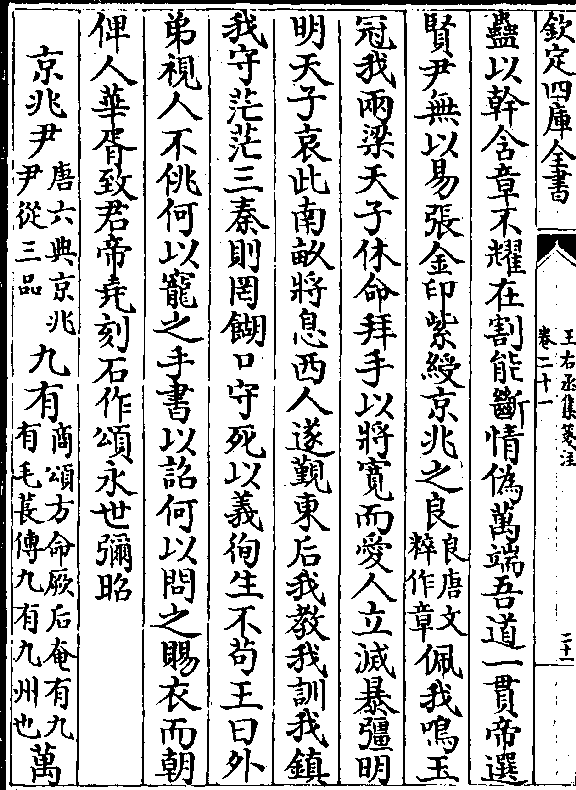 欽定四庫全書
王右丞集箋注
卷二十一
二十一
蠱以幹含章不耀在割能斷情偽萬端吾道一貫帝選
賢尹無以易張金印紫綬京兆之良良唐文粹作章佩我鳴玉
冠我兩梁天子休命拜手以將寛而愛人立滅暴彊明
明天子哀此南畝將息西人遂觀東后我教我訓我鎮
我守茫茫三秦則罔餬口守死以義徇生不苟王曰外
弟視人不佻何以寵之手書以詔何以問之賜衣而朝
俾人華胥致君帝堯刻石作頌永世彌昭
京兆尹唐六典京兆尹從三品九有商頌方命厥后奄有九有毛萇傳九有九州也萬